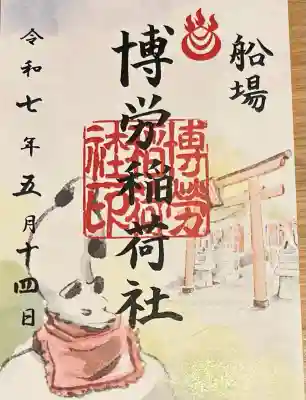 船場
博労稲荷社
博労稲荷社印
令和七年五月十四日